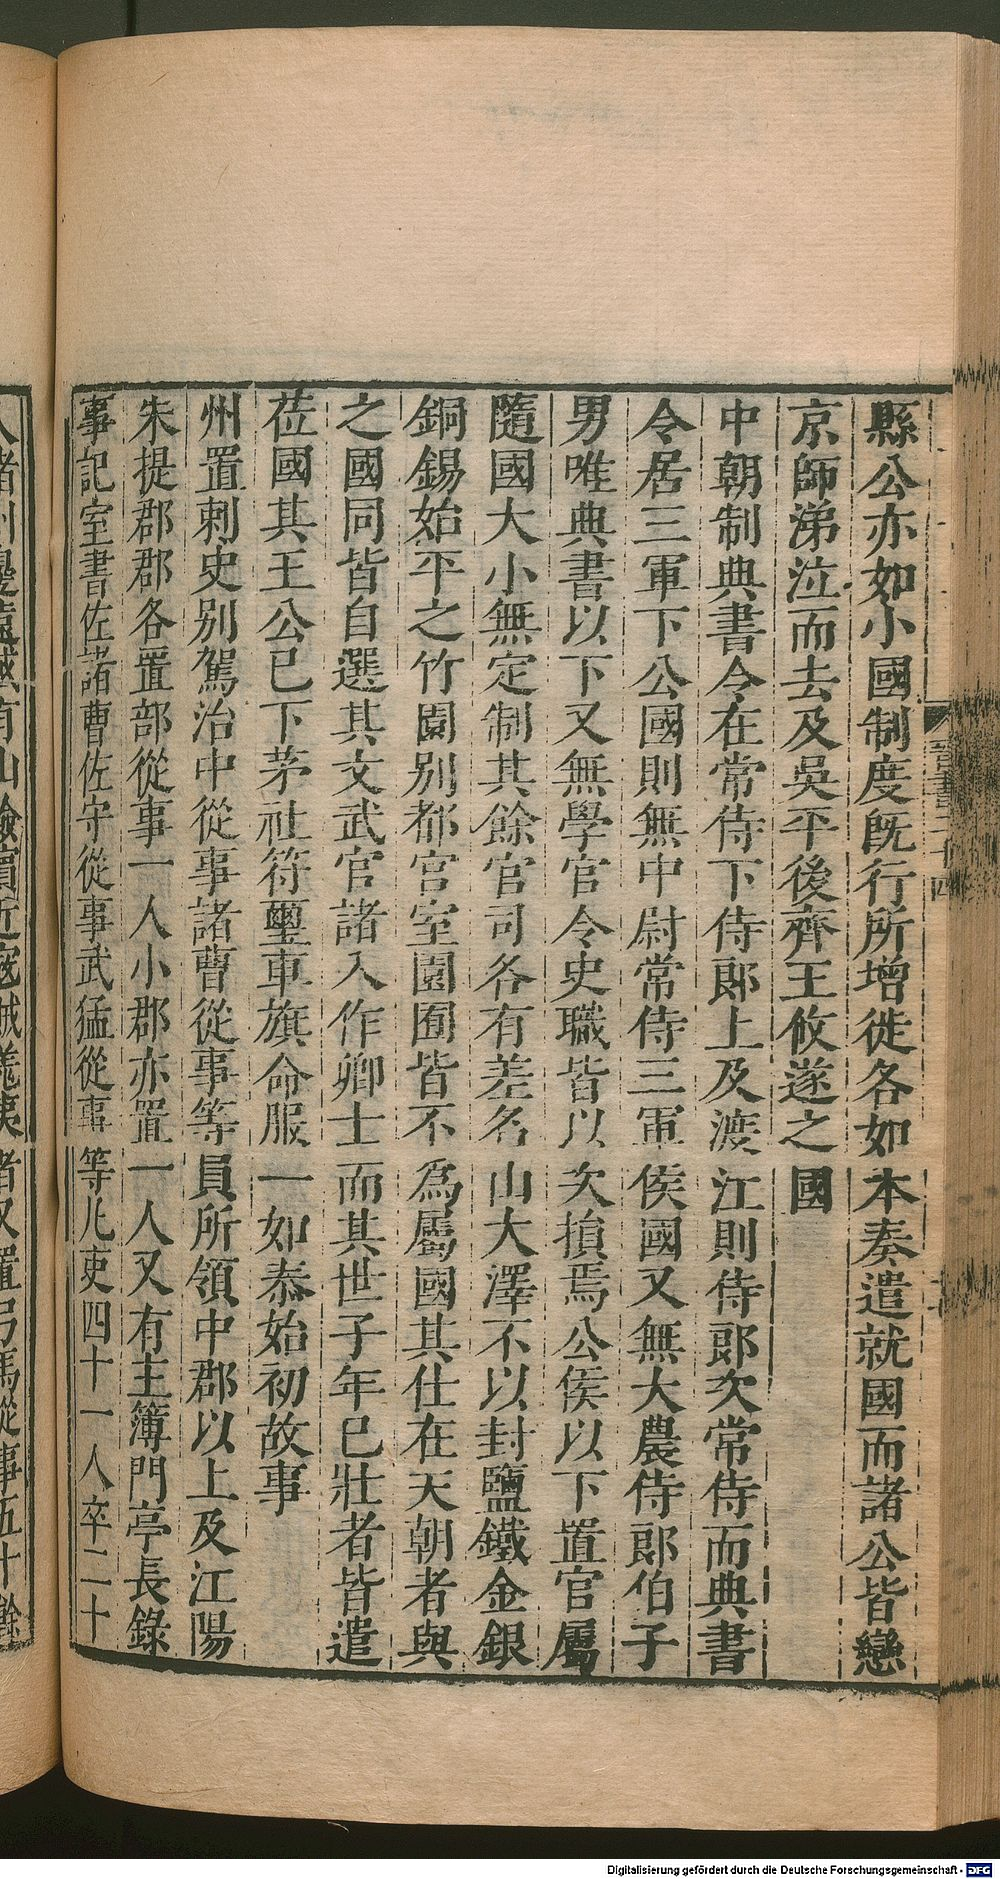 縣公亦如小國制度旣行所增徙各如本奏遣就國而諸公皆戀
京師涕泣而去及吳平後齊王攸遂之國
中朝制典書令在常侍下侍郎上及渡江則侍郎次常侍而典書
令居三軍下公國則無中尉常侍三軍侯國又無大農侍郎伯子
男唯典書以下又無學官令史職皆以次損焉公侯以下置官屬
隨國大小無定制其餘官司各有差名山大澤不以封鹽鐵金銀
銅錫始平之竹園別都宮室園囿皆不爲屬國其仕在天朝者與
之國同皆自選其文武官諸入作卿士而其世子年已壯者皆遣
莅國其王公已下茅社符璽車旗命服一如泰始初故事
州置刺史別駕治中從事諸曹從事等員所領中郡以上及江陽
朱提郡郡各置部從事一人小郡亦置一人又有主簿門亭長錄
事記室書佐諸曹佐守從事武猛從事等凡吏四十一人卒二十
晉書二十四
人諸州邊遠或有山險濱近寇賊羌夷者又置弓馬從事五十餘
Digitalisierung gefördert durch die Deutsche Forschungsgemeinschaft - DFG